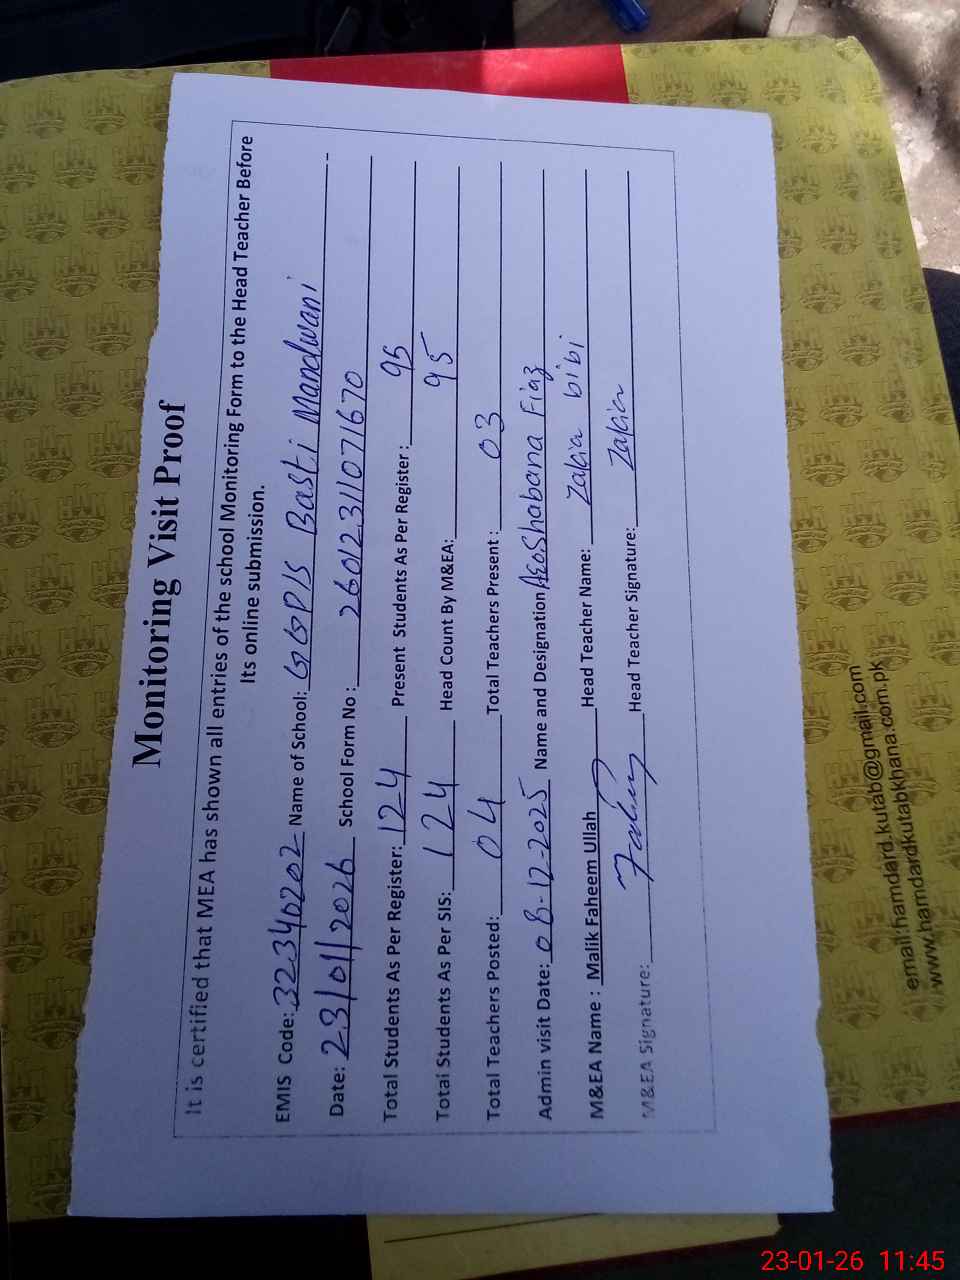 Monitoring Visit Proof
It is certified that MEA has shown all entries of the school Monitoring Form to the Head Teacher Before
Its online submission.
EMIS Code: 32340202 Name of School: GGP/S Basti Mandwani
Date: 23/01/2026 School Form No : 26012311071670
Total Students As Per Register: 124 Present Students As Per Register : 95
Total Students As Per SIS: 124 Head Count By M&EA: 95
Total Teachers Posted: 04 Total Teachers Present : 03
Admin visit Date: 08-12-2025 Name and Designation Aeo Shabana Fiaz
M&EA Name : Malik Faheem Ullah Head Teacher Name: Zakia bibi
M&EA Signature: Head Teacher Signature: Zakia
email:hamdard.kutab@gmail.com
www.hamdardkutabkhana.com.pk
23-01-26 11:45